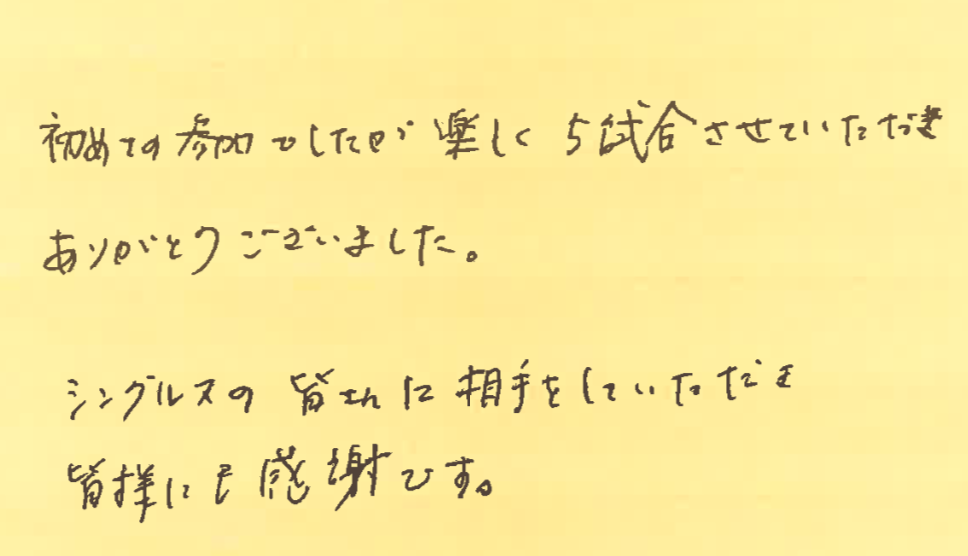 初めての参加でしたが楽しく5試合させていただき
ありがとうございました。
シングルスの皆さんに相手をしていただき
皆様にも感謝です。